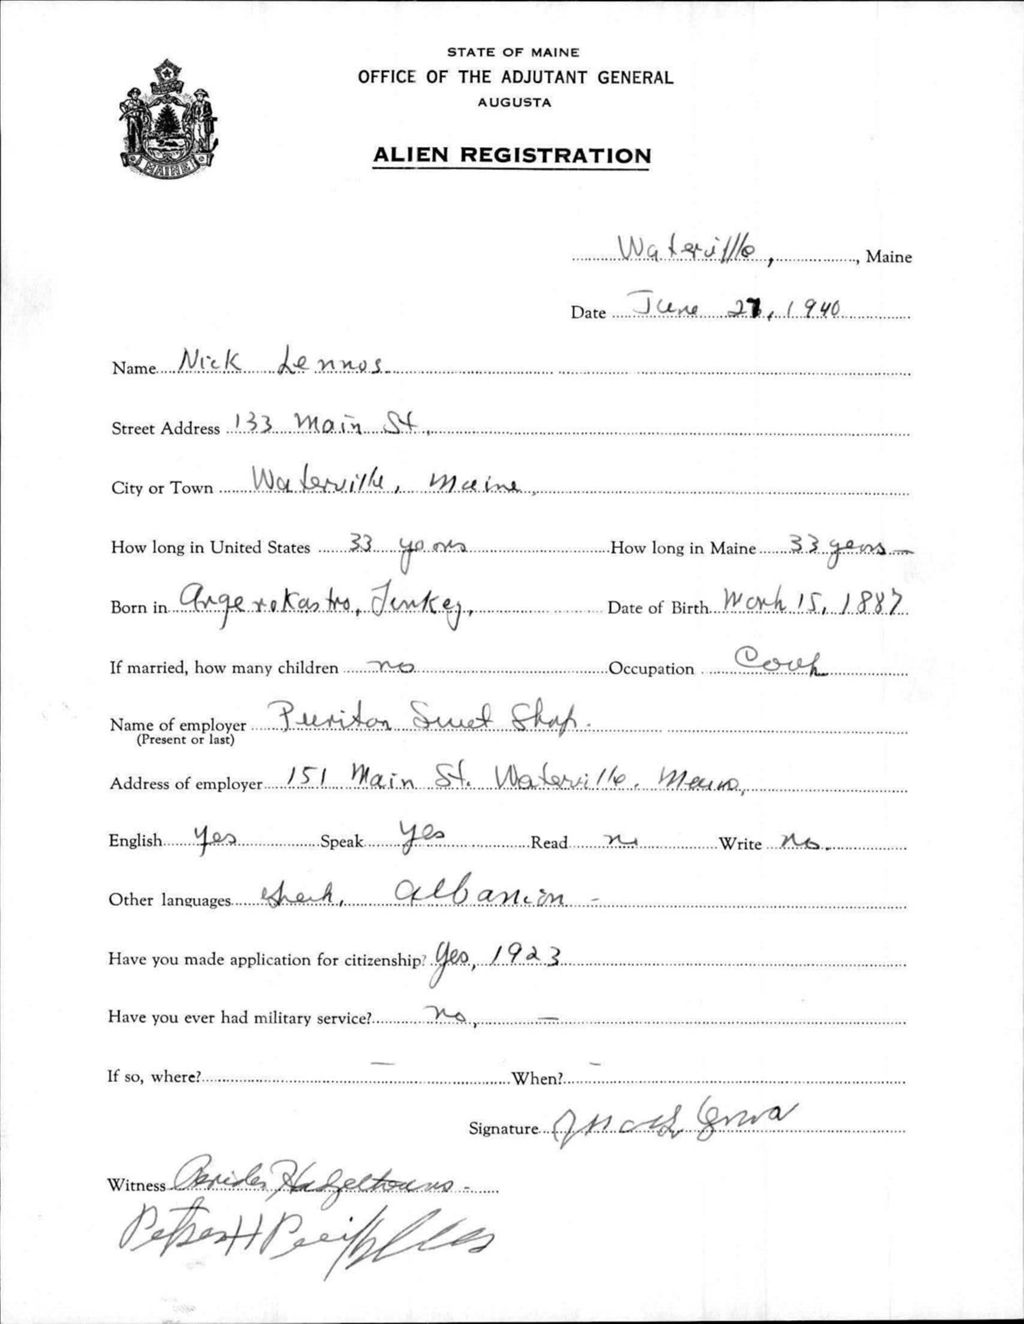 STATE OF MAINE
OFFICE OF THE ADJUTANT GENERAL
AUGUSTA
ALIEN REGISTRATION
MAINE
Waterville, , Maine
Date June 27, 1940
Name Nick Lennos
Street Address 133 Main St.
City or Town Waterville, Maine
How long in United States 33 years How long in Maine 33 years
Born in Argerokastro, Turkey, Date of Birth March 15, 1887
If married, how many children no Occupation Cook
Name of employer Puritan Sweet Shop.
(Present or last)
Address of employer 151 Main St. Waterville, Maine,
English yes Speak yes Read no Write no.
Other languages Greek, Albanian -
Have you made application for citizenship? Yes, 1923
Have you ever had military service? no, —
If so, where? — When? –
Signature
Witness